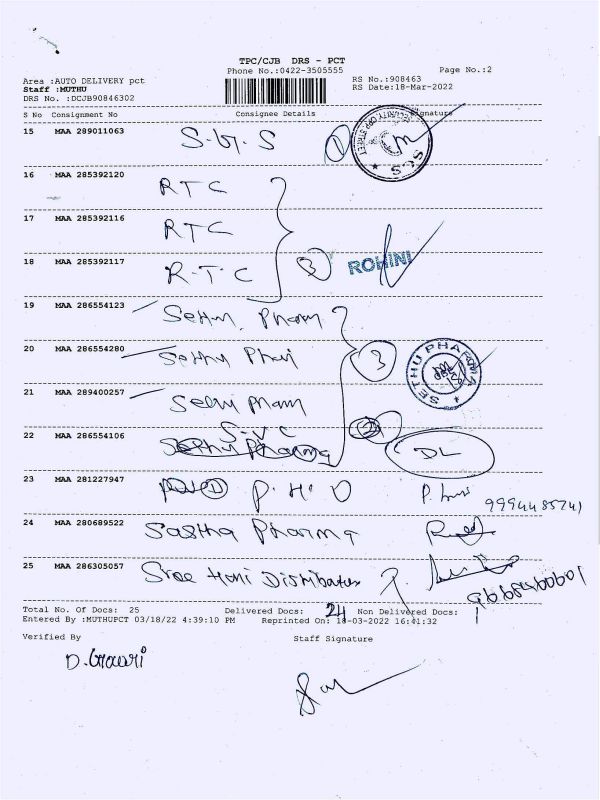 TPC/CJB DRS - PCT
Phone No.:0422-3505555 Page No.:2
Area :AUTO DELIVERY pct RS No.:908463
Staff :MUTHU RS Date:18-Mar-2022
DRS No. :DCJB90846302
S No Consignment No Consignee Details Signature
15 MAA 289011063 1 SGS
16 MAA 285392120 RTC
17 MAA 285392116 RTC
18 MAA 285392117 R.T.C 3 ROHINI
19 MAA 286554123 Sethu Pharm
20 MAA 286554280 Sethu 3 SETHU PHARMA
21 MAA 289400257
22 MAA 286554106 S.V.C DL
Sethu Pharma
23 MAA 281227947 P.H.O
24 MAA 280689522 Sastha Pharma
25 MAA 286305057 Sree Hari Distributer
Total No. Of Docs: 25 Delivered Docs: 24 Non Delivered Docs: 1
Entered By :MUTHUPCT 03/18/22 4:39:10 PM Reprinted On: 18-03-2022 16:41:32
Verified By Staff Signature